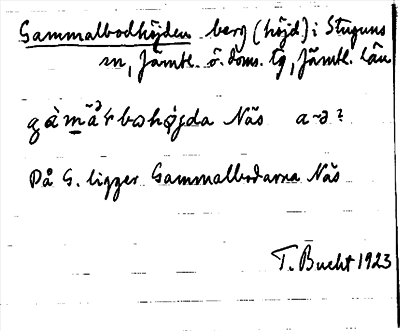 Gammalbodhöjden berg (höjd) i Stuguns
sn, Jämtl. ö. doms. tg, Jämtl. län
Näs a-ə?
På G. ligger Gammalbodarna Näs
T. Bucht 1923